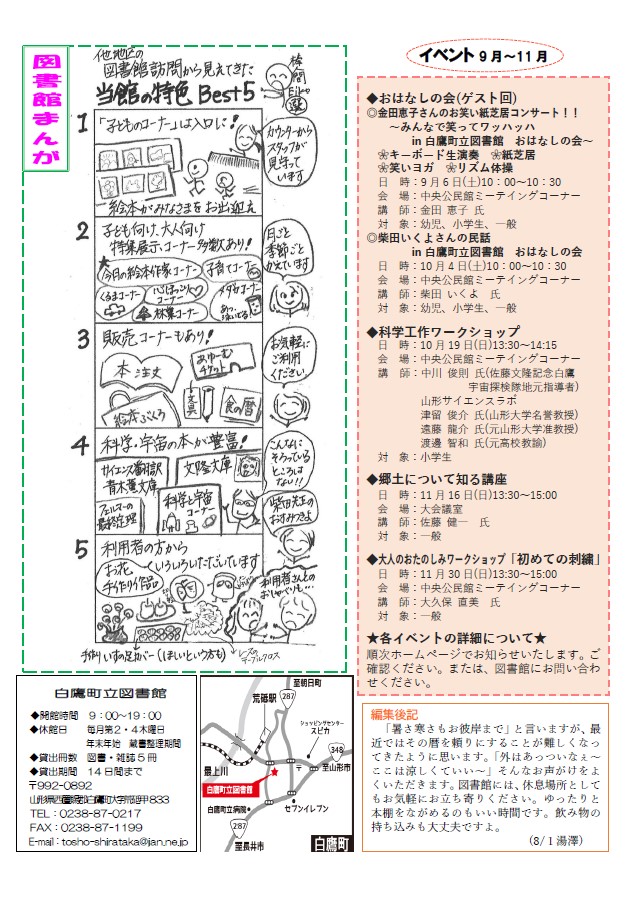 図書館まんが
他地区の
図書館訪問から見えてきた
当館の特色 Best5
1 「子どものコーナー」は入口に!
カウンターから
スタッフが
見守って
います
絵本がみなさまをお出迎え
2 子ども向け、大人向け
特集展示、コーナー多数あり!
今月の絵本作家コーナー
子育てコーナー
くるまコーナー
心ほっこりコーナー
メダカコーナー
林業コーナー
月ごと
季節ごと
かえています
3 販売コーナーもあり!
本 注文
おゆーむ
チケット
絵本ぶくろ
文具
食の暦
お気軽に
ご利用
ください
4 科学・宇宙の本が豊富!
サイエンス翻訳
青木薫文庫
文隆文庫
フェルマーの
最終定理
科学と宇宙
コーナー
こんなに
そろっている
ところは
ない!!
柴田先生の
おすみつきよ
5 利用者の方から
お花
いろいろいただいています
手作り作品
利用者さんとの
おしゃべりも…
手作りいすの足カバー(ほしいという方も)
レースの
テーブルクロス
イベント 9月~11月
◆おはなしの会(ゲスト回)
◎金田恵子さんのお笑い紙芝居コンサート!!
~みんなで笑ってワッハッハ
in 白鷹町立図書館 おはなしの会~
❀キーボード生演奏 ❀紙芝居
❀笑いヨガ ❀リズム体操
日 時:9月6日(土)10:00~10:30
会 場:中央公民館ミーテイングコーナー
講 師:金田 恵子 氏
対 象:幼児、小学生、一般
◎柴田いくよさんの民話
in 白鷹町立図書館 おはなしの会
日 時:10月4日(土)10:00~10:30
会 場:中央公民館ミーテイングコーナー
講 師:柴田 いくよ 氏
対 象:幼児、小学生、一般
◆科学工作ワークショップ
日 時:10月19日(日)13:30~14:15
会 場:中央公民館ミーテイングコーナー
講 師:中川 俊則 氏(佐藤文隆記念白鷹
宇宙探検隊地元指導者)
山形サイエンスラボ
津留 俊介 氏(山形大学名誉教授)
遠藤 龍介 氏(元山形大学准教授)
渡邊 智和 氏(元高校教諭)
対 象:小学生
◆郷土について知る講座
日 時:11月16日(日)13:30~15:00
会 場:大会議室
講 師:佐藤 健一 氏
対 象:一般
◆大人のおたのしみワークショップ「初めての刺繍」
日 時:11月30日(日)13:30~15:00
会 場:中央公民館ミーテイングコーナー
講 師:大久保 直美 氏
対 象:一般
★各イベントの詳細について★
順次ホームページでお知らせいたします。ご
確認ください。または、図書館にお問い合わ
せください。
白鷹町立図書館
◆開館時間 9:00~19:00
◆休館日 毎月第2・4木曜日
年末年始 蔵書整理期間
◆貸出冊数 図書・雑誌5冊
◆貸出期間 14日間まで
〒992-0892
山形県西置賜郡白鷹町大字荒砥甲833
TEL:0238-87-0217
FAX:0238-87-1199
E-mail:tosho-shirataka@jan.ne.jp
至朝日町
荒砥駅
287
ショッピングセンター
スピカ
348
最上川
至山形市
白鷹町立図書館
白鷹町立病院
セブンイレブン
287
至長井市
白鷹町
編集後記
「暑さ寒さもお彼岸まで」と言いますが、最
近ではその暦を頼りにすることが難しくなっ
てきたように思います。「外はあっついなぇ~
ここは涼しくていい~」そんなお声がけをよ
くいただきます。図書館には、休息場所として
もお気軽にお立ち寄りください。ゆったりと
本棚をながめるのもいい時間です。飲み物の
持ち込みも大丈夫ですよ。
(8/1湯澤)